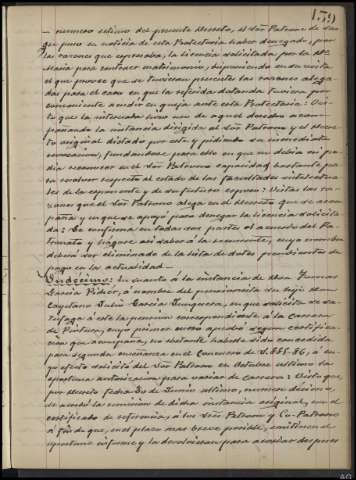 139
numero sétimo del presente Decreto, el Sor Patrono de San
que puso en noticia de esta Protectoria haber denegado, por
las razones que expresaba, la licencia solicitada por la Da
Maria para contraer matrimonio, disponiendo en su vista
el que provee que se tuvieran presentes las razones alega
das para el caso en que la referida dotanda tuviera por
conveniente acudir en queja ante esta Protectoria: Vis
to que la interesada hizo uso de aquel derecho acom
pañando la instancia dirigida al Sor Patrono y el decre
to original dictado por este y pidiendo su inmediata
revocacion, fundandose para ello en que no debia ni po
dia reconocer en el Sor Patrono capacidad bastante pa
ra resolver respecto al estado de las facultades intelectua
les de la exponente y de su futuro esposo: Vistas las ra
zones que el Sor Patrono alega en el decreto que se acom
paña y en que se apoyó para denegar la licencia solicita
da: Se confirma en todas sus partes el acuerdo del Pa
tronato y hágase asi saber á la recurrente, cuyo nombre
deberá ser eliminado de la lista de dotes pendientes de
pago en la actualidad.
Undecimo: En cuanto á la instancia de Don
Garcia á nombre del pensionista su hijo Don
Cayetano Julio Garcia Junquera, en que solicita se sa
tisfaga á este la pension correspondiente á la carrera
de Pintura, cuyo primer curso aprobó segun certifica
cion que acompaña, no obstante haberle sido concedida
para segunda enseñanza en el Concurso de 1.885-86, á cu
yo efecto solicitó del Sor Patrono en Octubre ultimo la
oportuna autorizacion para variar de carrera: Visto que,
por decreto fecha 30 de Junio ultimo, numero décimo,
se acordó la remision de dicha instancia original, con el
certificado de referencia, á los Sres Patrono y Co-Patrono
á fin de que, en el plazo mas breve posible, emitiesen el
oportuno informe y la devolvieran para acordar despues